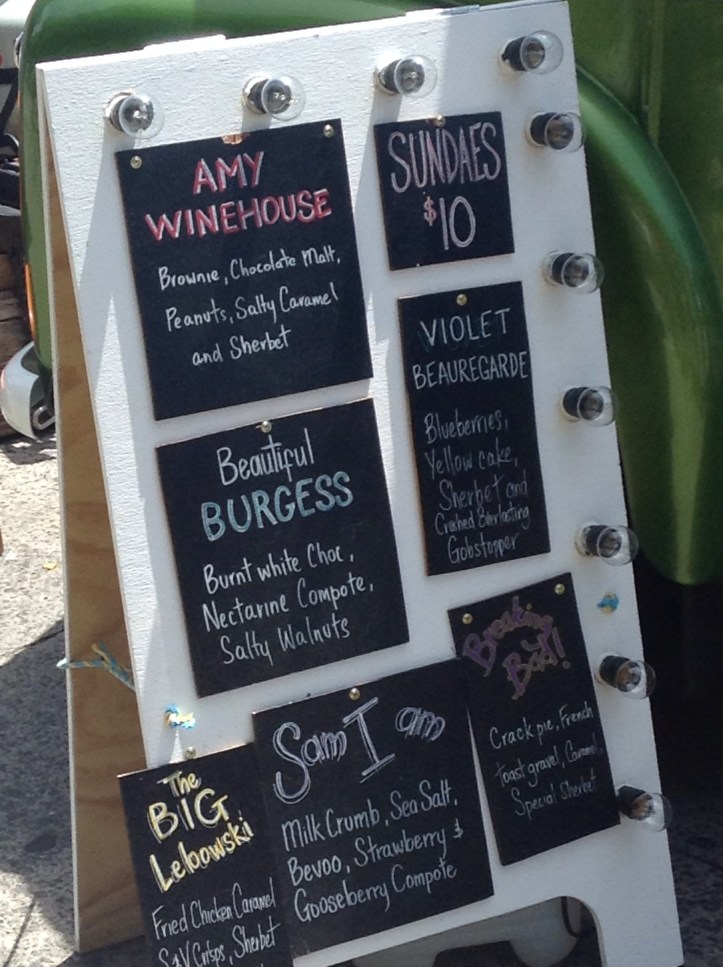 AMY
WINEHOUSE
Brownie, Chocolate Malt,
Peanuts, Salty Caramel
and Sherbet
SUNDAES
$10
VIOLET
BEAUREGARDE
Blueberries,
Yellow cake,
Sherbet and
Crushed Everlasting
Gobstopper
Beautiful
BURGESS
Burnt white Choc,
Nectarine Compote,
Salty Walnuts
Breaking
Bad!
Crack pie, French
toast gravel, Caramel,
Special Sherbet
Sam I am
Milk Crumb, Sea Salt,
Bevoo, Strawberry &
Gooseberry Compote
The
BIG
Lebowski
Fried Chicken Caramel
S&V Crisps, Sherbet